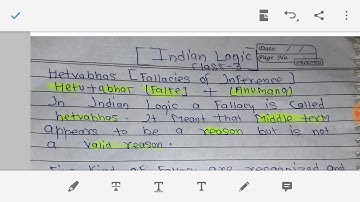 [Indian Logic]
Class-3
Date: / /
Page No.
Hetvabhas [Fallacies of Inference]
Hetu+abhas [False] + [Anumana]
In Indian Logic a Fallacy is Called
hetvabhos. It Meant that Middle term
appears to be a reason but is not
a Valid reason.
Five Kind of Fallacy are recognized and